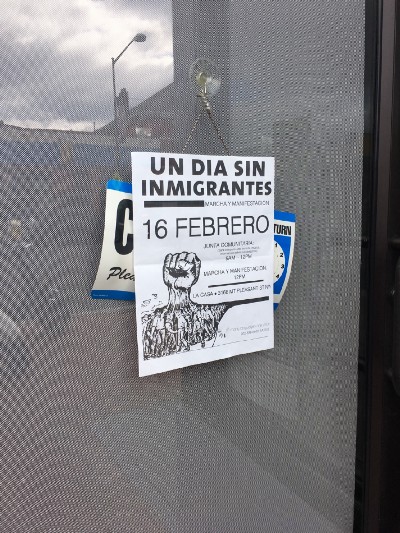 UN DIA SIN
INMIGRANTES
MARCHA Y MANIFESTACION
16 FEBRERO
JUNTA COMUNITARIA:
9AM - 12PM
MARCHA Y MANIFESTACION
12PM
LA CASA • 3166 MT PLEASANT ST NW
C
TURN
Plea